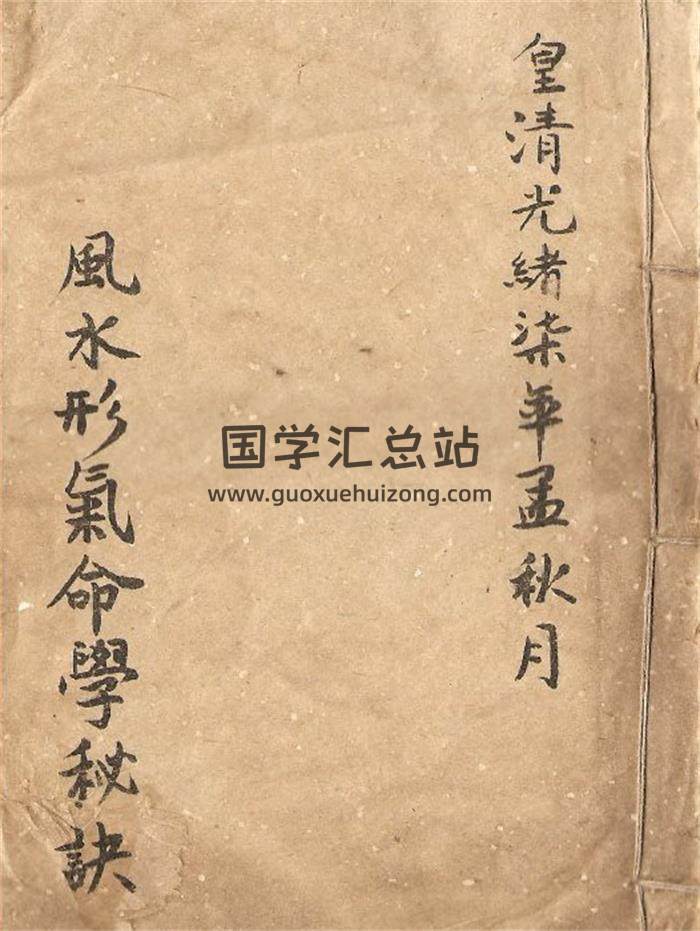 皇清光緒柒年孟秋月
風水形氣命學秘訣
国学汇总站
www.guoxuehuizong.com